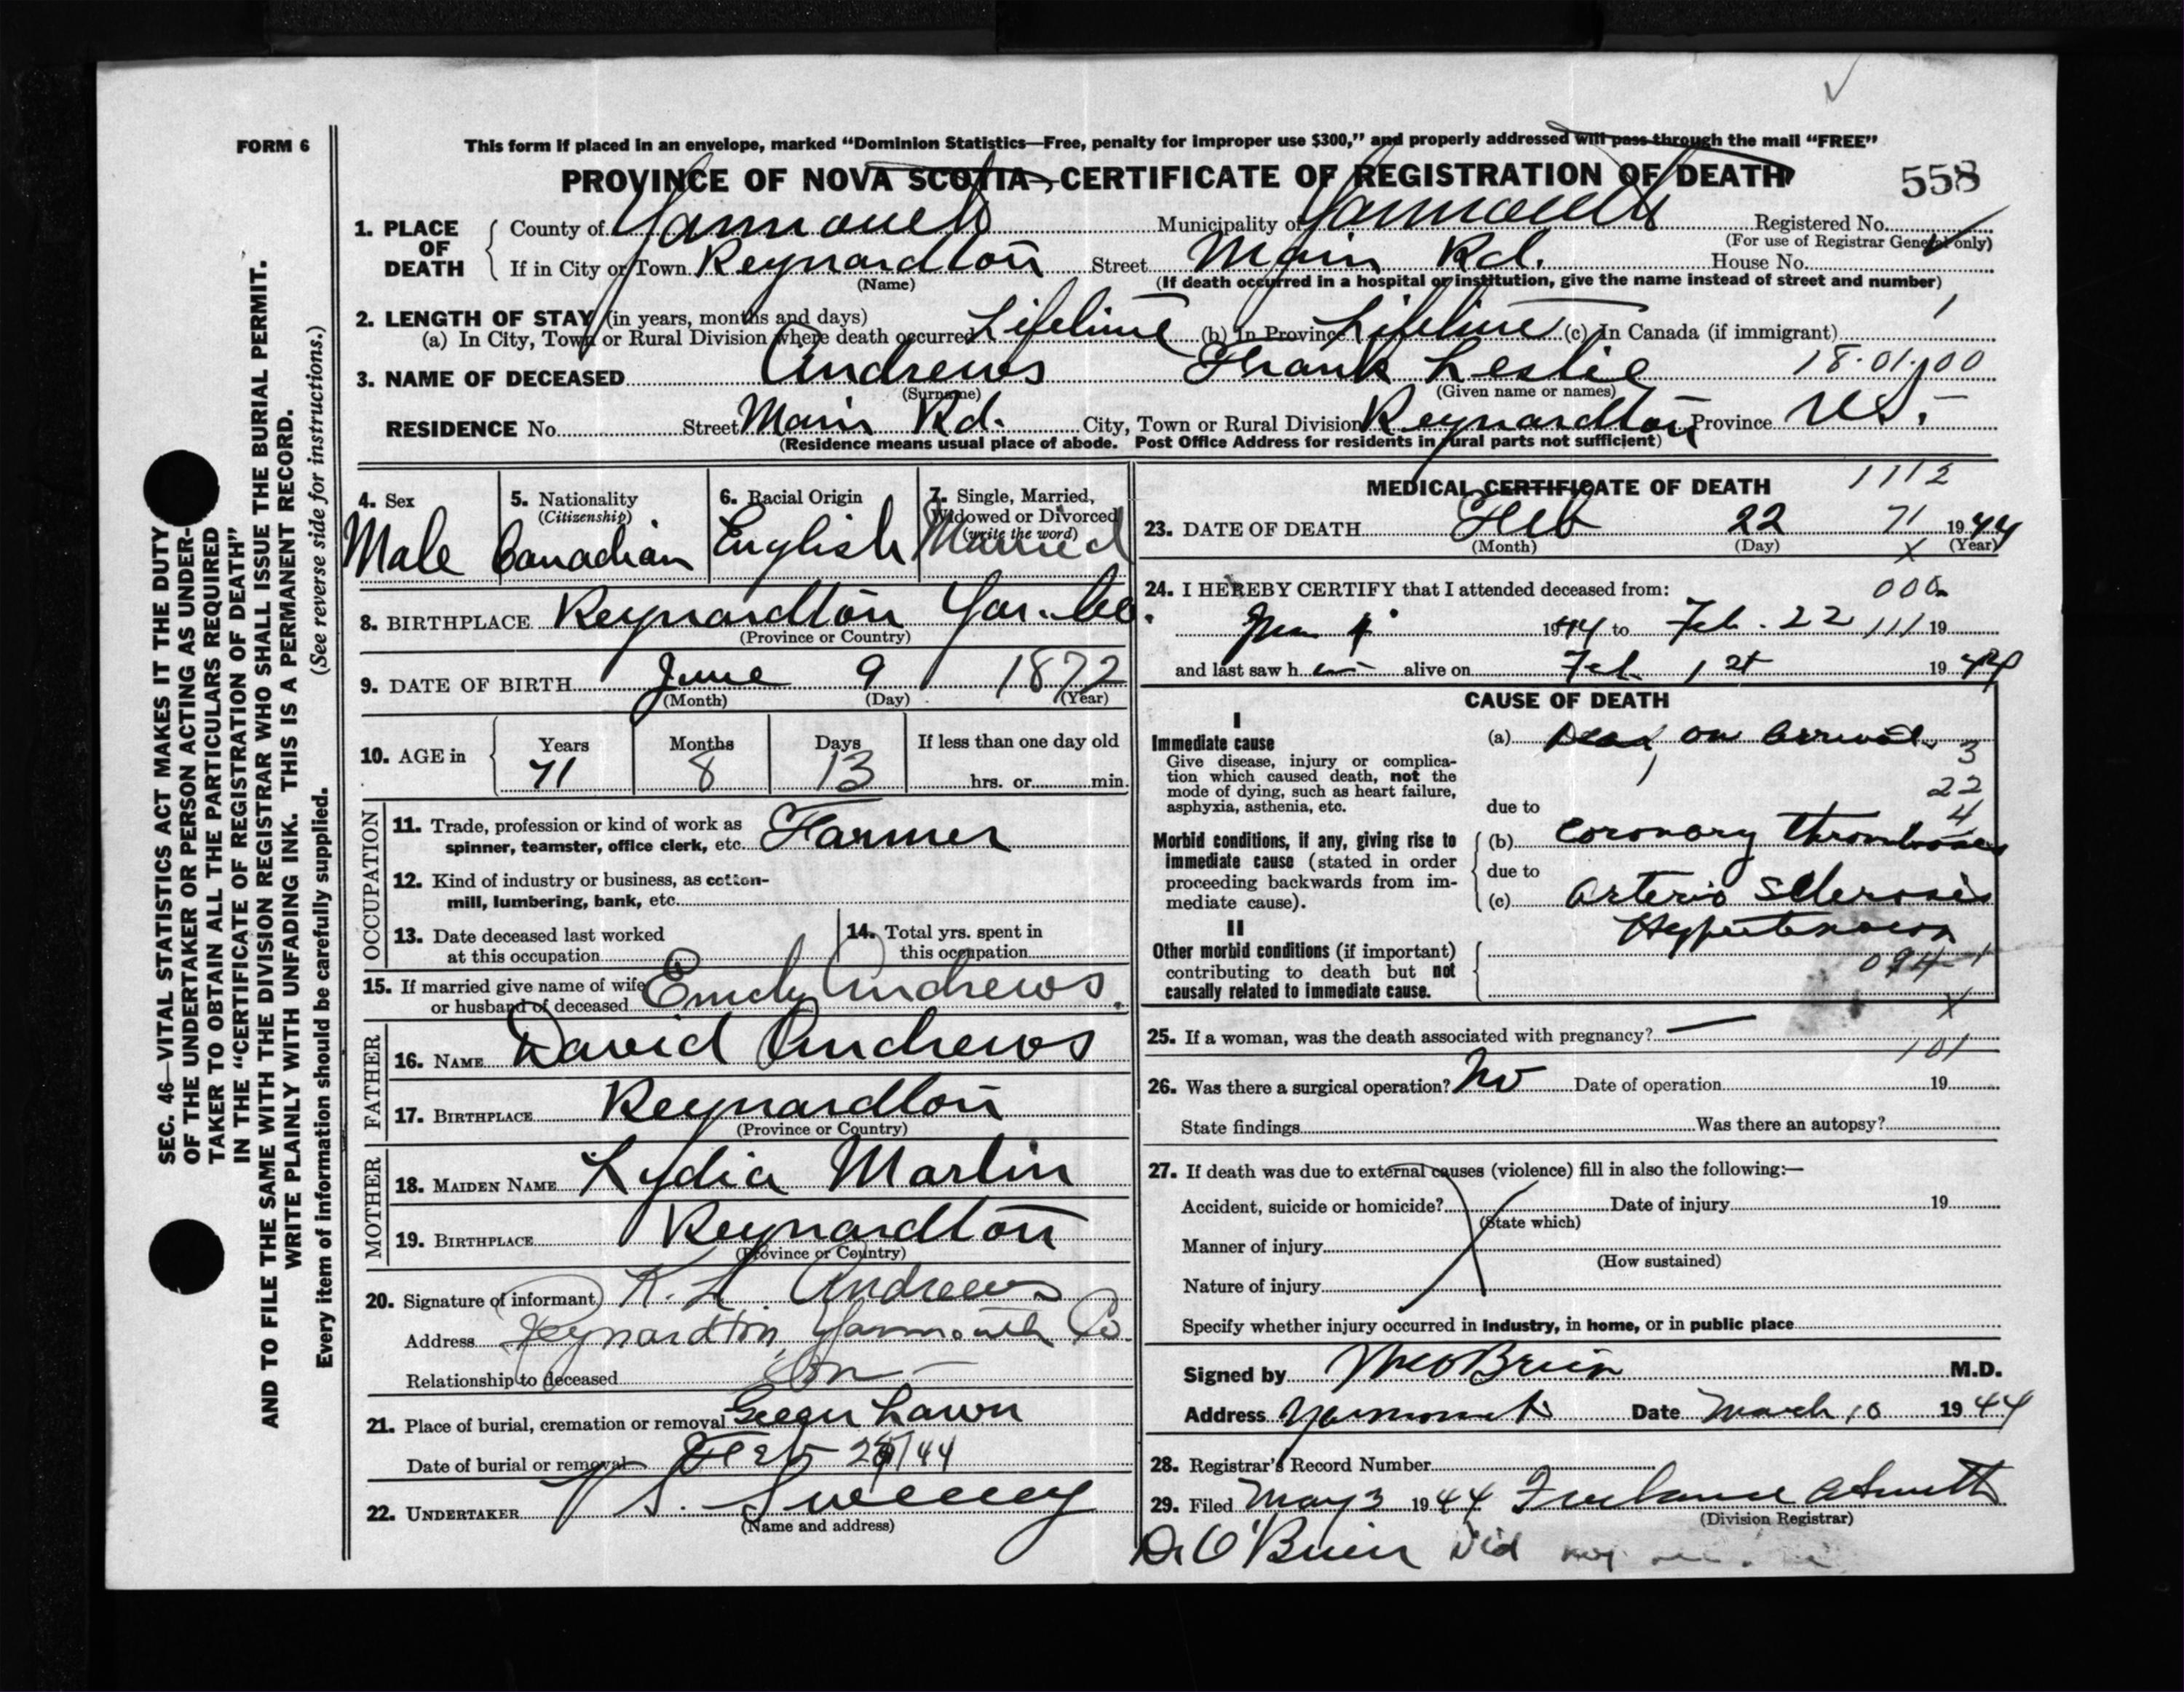 FORM 6
This form if placed in an envelope, marked “Dominion Statistics—Free, penalty for improper use $300,” and properly addressed will pass through the mail “FREE”
PROVINCE OF NOVA SCOTIA, CERTIFICATE OF REGISTRATION OF DEATH
558
1. PLACE OF DEATH
County of Yarmouth Municipality of Yarmouth Registered No.
(For use of Registrar General only)
If in City or Town Reynardton Street Main Rd. House No.
(Name) (If death occurred in a hospital or institution, give the name instead of street and number)
2. LENGTH OF STAY (in years, months and days)
(a) In City, Town or Rural Division where death occurred Lifetime (b) In Province Lifetime (c) In Canada (if immigrant)
3. NAME OF DECEASED Andrews Frank Leslie 18.01.00
(Surname) (Given name or names)
RESIDENCE No. Street Main Rd. City, Town or Rural Division Reynardton Province N.S.
(Residence means usual place of abode. Post Office Address for residents in rural parts not sufficient)
SEC. 46—VITAL STATISTICS ACT MAKES IT THE DUTY
OF THE UNDERTAKER OR PERSON ACTING AS UNDER-
TAKER TO OBTAIN ALL THE PARTICULARS REQUIRED
IN THE “CERTIFICATE OF REGISTRATION OF DEATH”
AND TO FILE THE SAME WITH THE DIVISION REGISTRAR WHO SHALL ISSUE THE BURIAL PERMIT.
WRITE PLAINLY WITH UNFADING INK. THIS IS A PERMANENT RECORD.
Every item of information should be carefully supplied. (See reverse side for instructions.)
4. Sex
Male
5. Nationality
(Citizenship)
Canadian
6. Racial Origin
English
7. Single, Married,
Widowed or Divorced
(write the word)
Married
8. BIRTHPLACE Reynardton Yar. Co.
(Province or Country)
9. DATE OF BIRTH June 9 1872
(Month) (Day) (Year)
10. AGE in
Years Months Days If less than one day old
71 8 13 hrs. or min.
OCCUPATION
11. Trade, profession or kind of work as
spinner, teamster, office clerk, etc. Farmer
12. Kind of industry or business, as cotton-
mill, lumbering, bank, etc.
13. Date deceased last worked
at this occupation
14. Total yrs. spent in
this occupation
15. If married give name of wife
or husband of deceased Emily Andrews.
FATHER
16. NAME David Andrews
17. BIRTHPLACE Reynardton
(Province or Country)
MOTHER
18. MAIDEN NAME Lydia Martin
19. BIRTHPLACE Reynardton
(Province or Country)
20. Signature of informant K. H. Andrews
Address Reynardton, Yarmouth Co
Relationship to deceased Son
21. Place of burial, cremation or removal Green Lawn
Date of burial or removal Feb /44
22. UNDERTAKER V S. Sweeney
(Name and address)
MEDICAL CERTIFICATE OF DEATH 1112
23. DATE OF DEATH Feb 22 71 1944
(Month) (Day) (Year)
X
24. I HEREBY CERTIFY that I attended deceased from: 000
1944 to Feb. 22 111 19
and last saw h im alive on Feb. 1st 1944
CAUSE OF DEATH
I
Immediate cause
Give disease, injury or complica-
tion which caused death, not the
mode of dying, such as heart failure,
asphyxia, asthenia, etc.
(a) Dead on arrival. 3
22
due to 4
Morbid conditions, if any, giving rise to
immediate cause (stated in order
proceeding backwards from im-
mediate cause).
(b) Coronary thrombosis
due to
(c) Arterio Sclerosis
Hypertension
II
Other morbid conditions (if important)
contributing to death but not
causally related to immediate cause.
094 1
X
25. If a woman, was the death associated with pregnancy? —
101
26. Was there a surgical operation? No Date of operation 19
State findings Was there an autopsy?
27. If death was due to external causes (violence) fill in also the following:—
Accident, suicide or homicide? Date of injury 19
(State which)
Manner of injury
(How sustained)
Nature of injury
Specify whether injury occurred in industry, in home, or in public place
Signed by O'Brien M.D.
Address Yarmouth Date March 10 1944
28. Registrar's Record Number
29. Filed May 3 1944 Smith
(Division Registrar)
Dr O'Brien did